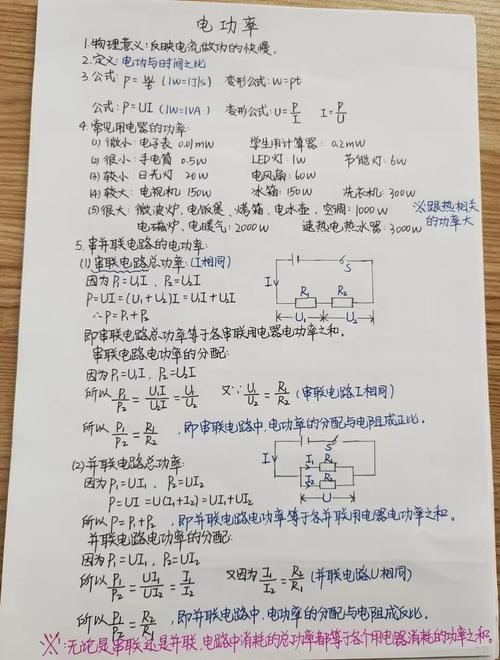 电功率
1.物理意义:反映电流做功的快慢。
2.定义:电功与时间之比
3.公式:P=W/t (1W=1J/s) 变形公式:W=pt
公式:P=UI (1W=1VA) 变形公式:U=P/I I=P/U
4.常见用电器的功率:
(1)微小:电子表 0.01mW 学生用计算器:0.2mW
(2)很小:手电筒 0.5W LED灯:1W 节能灯:6W
(3)较小:日光灯 20W 电风扇:60W
(4)较大:电视机 150W 冰箱:150W 洗衣机:300W
(5)很大:微波炉、电饭煲、烤箱、电水壶、空调:1000W ※跟热相关的功率大
电磁炉、电暖气:2000W 速热电热水器:3000W
5.串并联电路的电功率:
(1)串联电路总功率:(I相同)
因为P₁=U₁I、P₂=U₂I
P=UI=(U₁+U₂)I=U₁I+U₂I
∴P=P₁+P₂
I S R₁ R₂ U₁ U₂
即串联电路总功率等于各串联用电器电功率之和。
串联电路电功率的分配:
因为P₁=U₁I、P₂=U₂I
所以P₁/P₂=U₁I/U₂I=U₁/U₂ 又∵U₁/U₂=R₁/R₂(串联电路I相同)
所以P₁/P₂=R₁/R₂,即串联电路中,电功率的分配与电阻成正比。
(2)并联电路总功率:
因为P₁=UI₁、P₂=UI₂
P=UI=U(I₁+I₂)=UI₁+UI₂
I S I₁ R₁ I₂ R₂ U
所以P=P₁+P₂,即并联电路电功率等于各并联用电器电功率之和。
并联电路电功率的分配:
因为P₁=UI₁、P₂=UI₂
所以P₁/P₂=UI₁/UI₂=I₁/I₂ 又因为I₁/I₂=R₂/R₁(并联电路U相同)
所以P₁/P₂=R₂/R₁,即并联电路中,电功率的分配与电阻成反比。
※:无论是串联还是并联,电路中消耗的总功率都等于各个用电器消耗的功率之和。